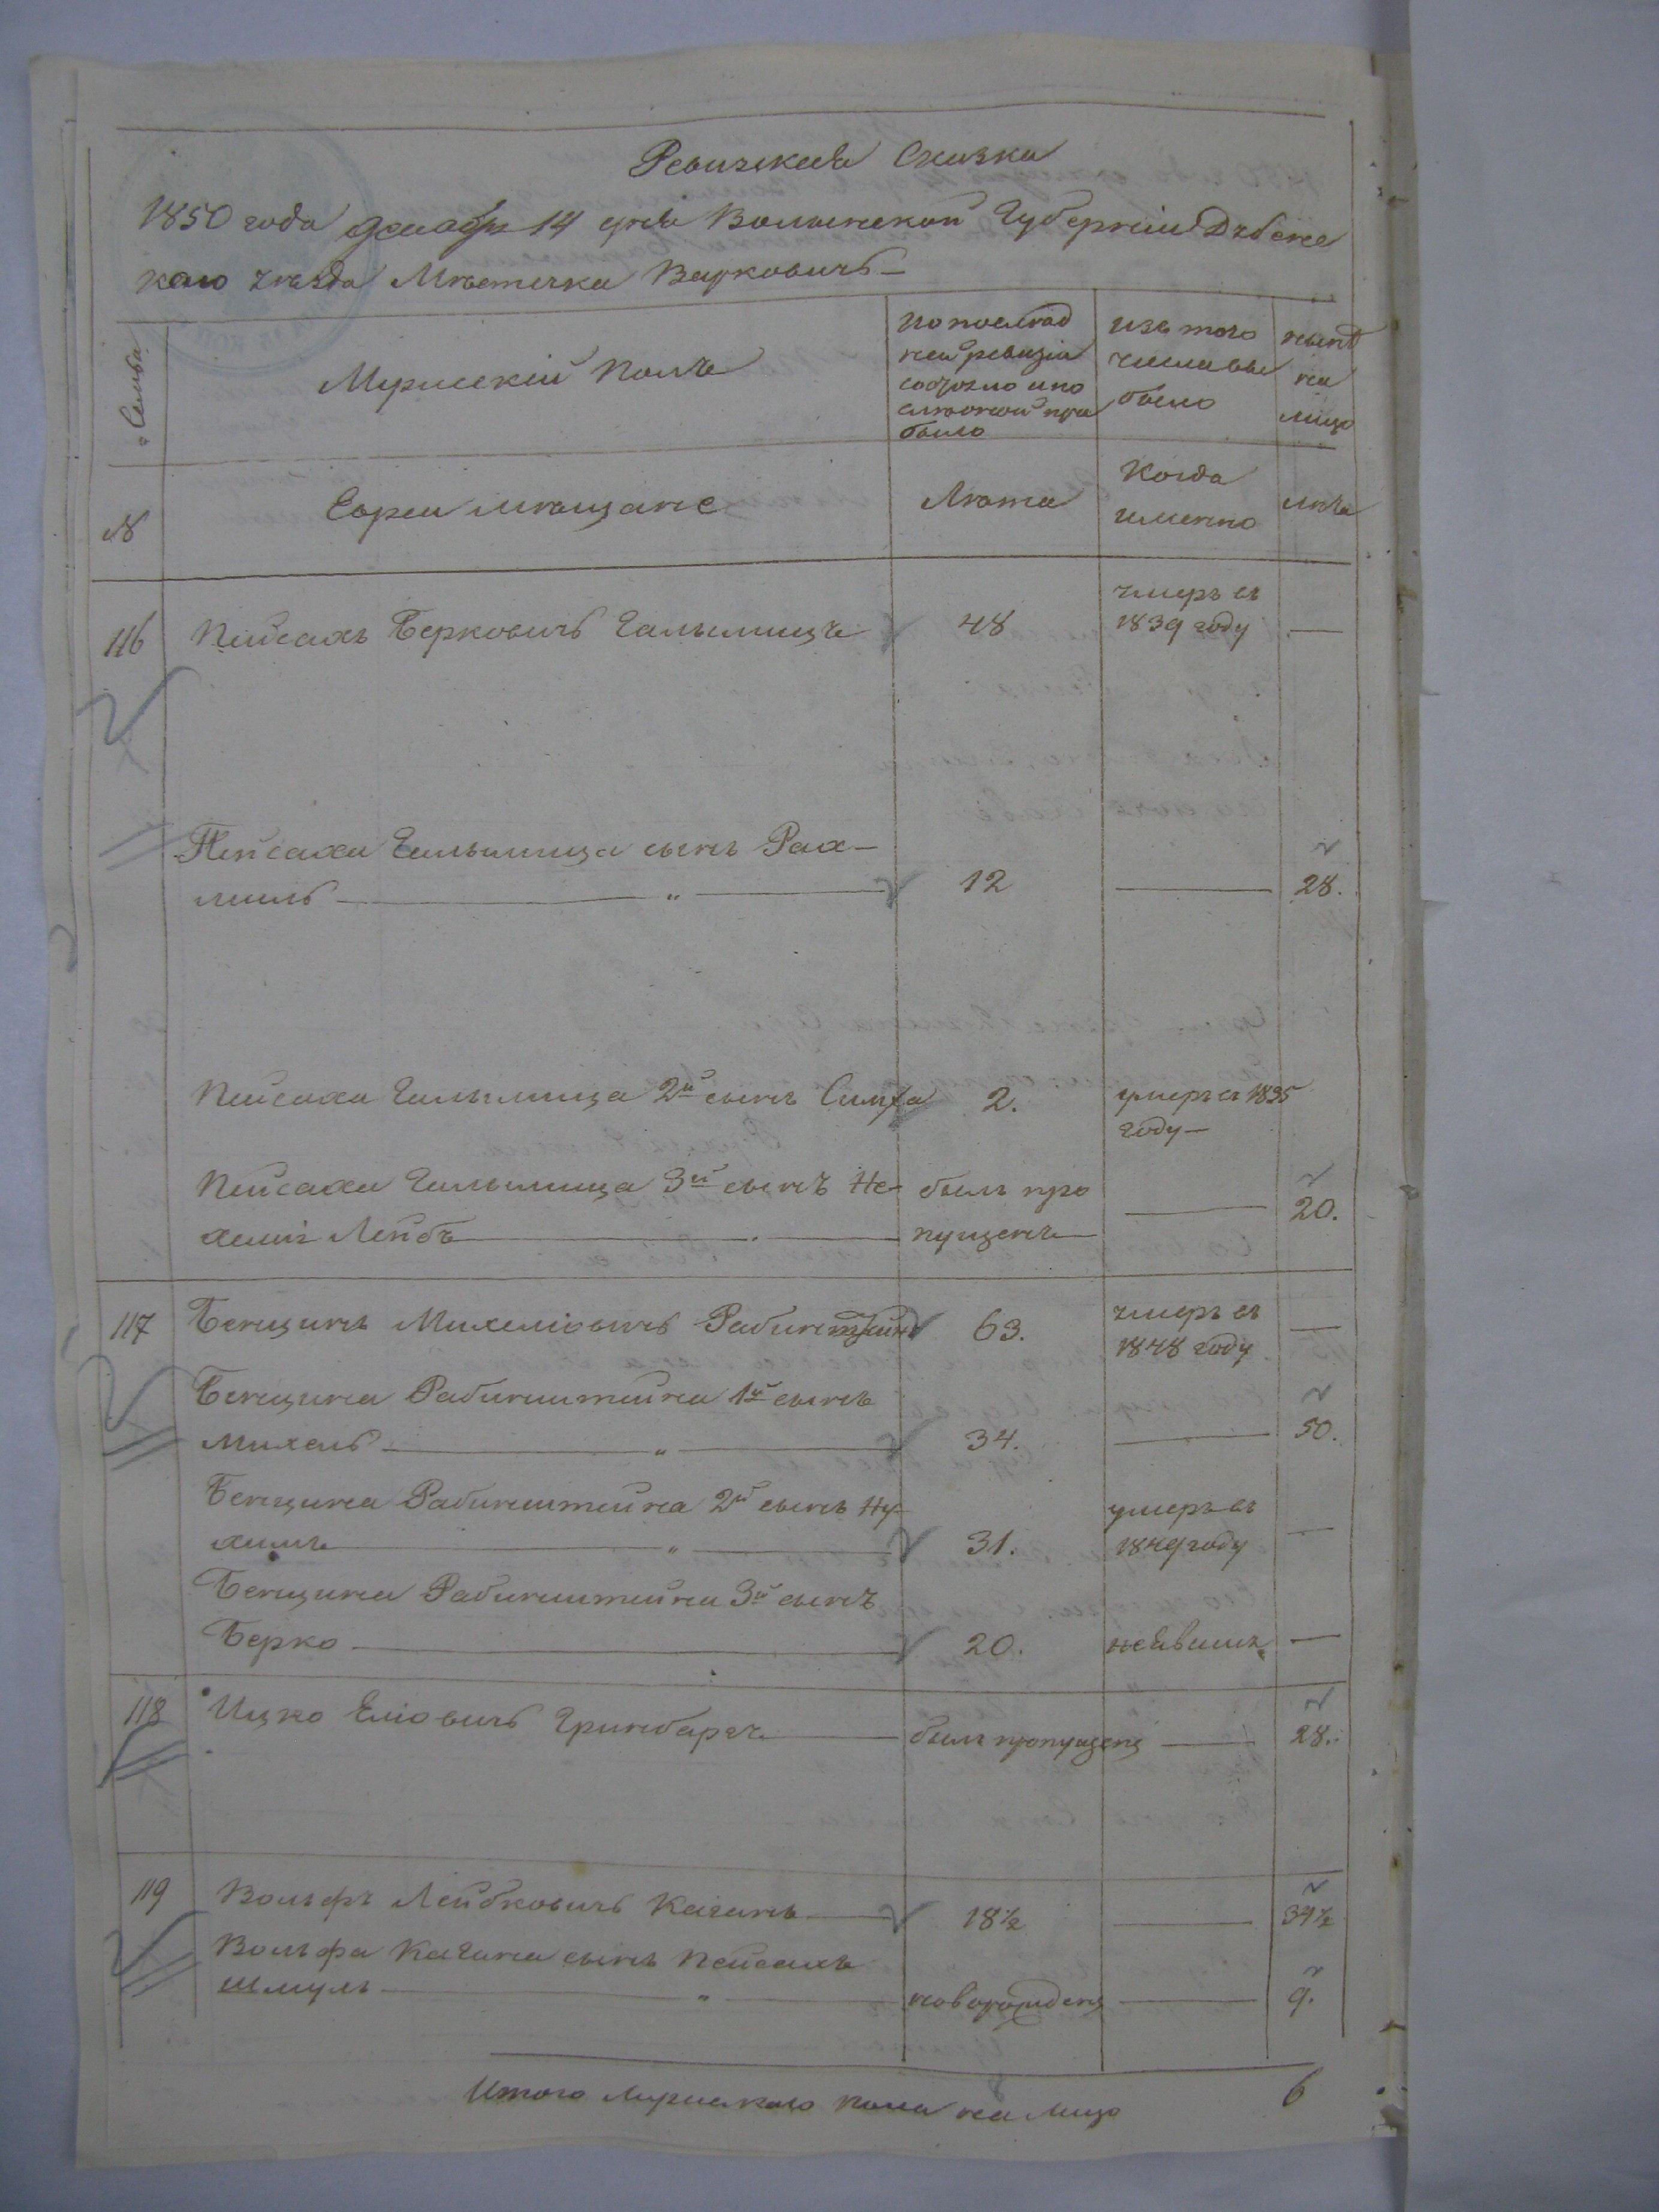 Ревизская Сказка
1850 года декабря 14 дня Волынской Губернии Дубенс
каго уезда Мѣстечка Варковичь
Семьи
Мужескій Полъ
По послѣд
ней ревизіи
состояло и по
слѣ оной при
было
Изъ того
числа вы
было
нынѣ
на
лицо
№
Евреи мѣщане
Лѣта
Когда
именно
лѣта
116 Пейсахъ Берковичъ Гальмицъ 48 умеръ въ
1839 году —
Пейсаха Гальмица сынъ Рах-
миль — „ — 12 — 28.
Пейсаха Гальмица 2й сынъ Симха 2. умеръ въ 1835
году —
Пейсаха Гальмица 3й сынъ Не- былъ про
хемiя Лейбъ — пущенъ — 20.
117 Бенцинъ Михеліовичъ Рабинштейнъ 63. умеръ въ
1848 году —
Бенцина Рабинштейна 1й сынъ
Михель — „ — 34. — 50.
Бенцина Рабинштейна 2й сынъ Ну-
химъ — „ — 31. умеръ въ
1849 году —
Бенцина Рабинштейна 3й сынъ
Берко — 20. неявился —
118 Ицко Еліовичъ Гринбаргъ — былъ пропущенъ — 28.
119 Вольфъ Лейбковичъ Каганъ — 18½ — 34½
Вольфа Кагана сынъ Пейсахъ
Шмуль — „ — новорожденъ — 9.
Итого Мужескаго пола на лицо 6